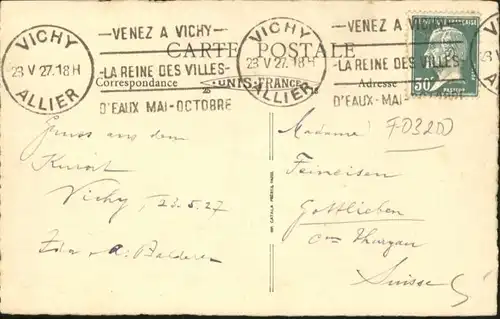 VICHY
23 V 27. 18 H
ALLIER
-VENEZ A VICHY-
-LA REINE DES VILLES-
D'EAUX MAI-OCTOBRE
VICHY
23 V 27. 18 H
ALLIER
-VENEZ A VICHY-
-LA REINE DES VILLES-
D'EAUX-MAI-
CARTE POSTALE
Correspondance
UNIS-FRANCE
Adresse
50c
PASTEUR
Gruss aus dem
Kurort
Vichy, 23.5.27
Ida
Madame
F-03200
Feineisen
Gottlieben
Thurgau
Suisse